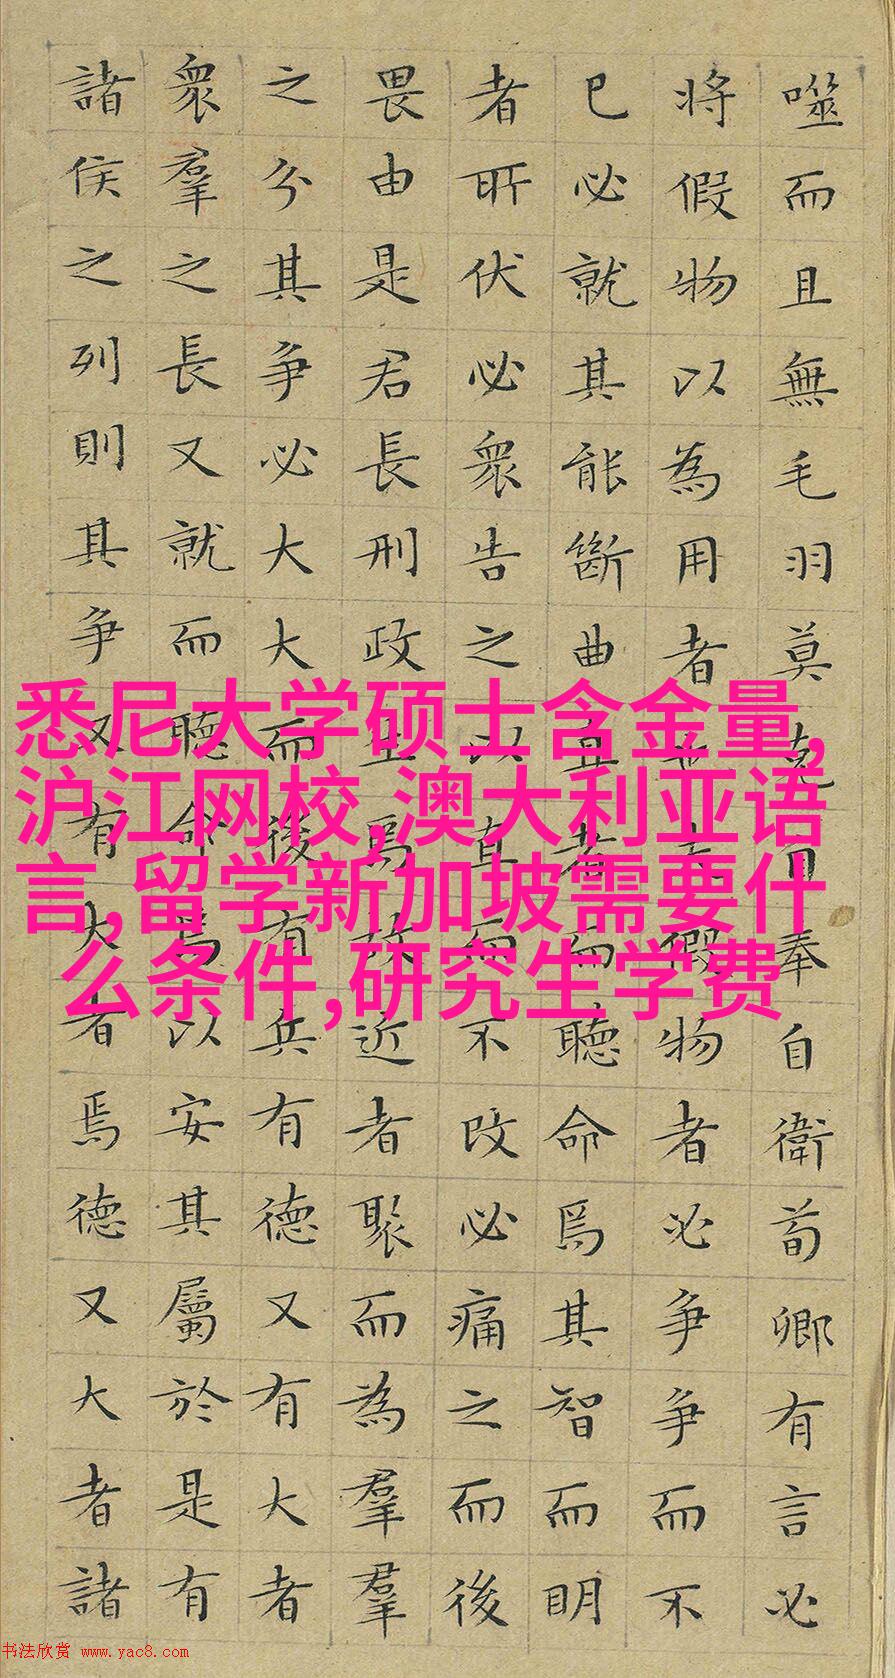 噬而且無毛羽莫克自奉自衛荀卿有言必
將假物以為用者也夫假物者必爭爭而不
已必就其能斷曲直者而聽命焉其智而明
者所伏必衆告之以直而不改必痛之而後
畏由是君長刑政生焉故近者聚而為羣羣
之分其爭必大大而後有兵有德又有大者
衆羣之長又就而聽命焉以安其屬於是有
諸侯之列則其爭又有大者焉德又大者諸
悉尼大学硕士含金量,
沪江网校,澳大利亚语
言,留学新加坡需要什
么条件,研究生学费
书法欣赏 www.yac8.com